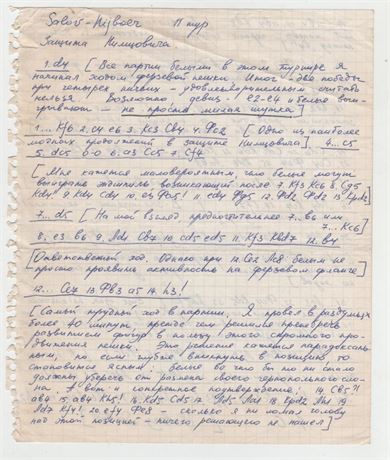 Salov - Nijboer 11 тур
Защита Нимцовича.
1.d4 [Все партии белыми в этом турнире я
начинал ходом ферзевой пешки. Итог - две победы
при четырех ничьих - удовлетворительным считать
нельзя. Возможно девиз: e2-e4 и белые выи-
грывают - не просто милая шутка]
1... Kf6 2.c4 e6 3. Kc3 Cb4 4. Фc2 [Одно из наиболее
модных продолжений в защите Нимцовича]. 4... c5
5. dc5 0-0 6. a3 Cc5 7. Cf4
[Мне кажется маловероятным, что белые могут
выиграть эндшпиль возникающий после 7. Kf3 Kc6 8. Cg5
7... d5 [На мой взгляд предпочтительнее 7.. b6 или
7... Kc6]
8. e3 b6 9. Лd1 Cb7 10. cd5 ed5 11. Kf3 Kbd7 12. b4
[Ответственный ход. Однако при 12. Ce2 Лc8 белым не
просто проявить активность на ферзевом фланге]
12... Ce7 13 Фb3 a5 14. h3!
[Самый трудный ход в партии. Я провел в раздумьях
более 40 минут, прежде чем решился пренебречь
развитием фигур в пользу этого скромного про-
движения пешки. Эта затяжка кажется парадоксаль-
ным, но если глубже вникнуть в позицию то
становится ясным: белые во что бы то ни стало
должны уберечь от размена своего чернопольного сло-
на. А вот и конкретное подтверждение: 14. Cb5?!
ab4 15. ab4 Kh5! 16. Kd5 Cd5 17.
- сколько я ни ломал голову
над этой позицией - ничего решающего не нашел]